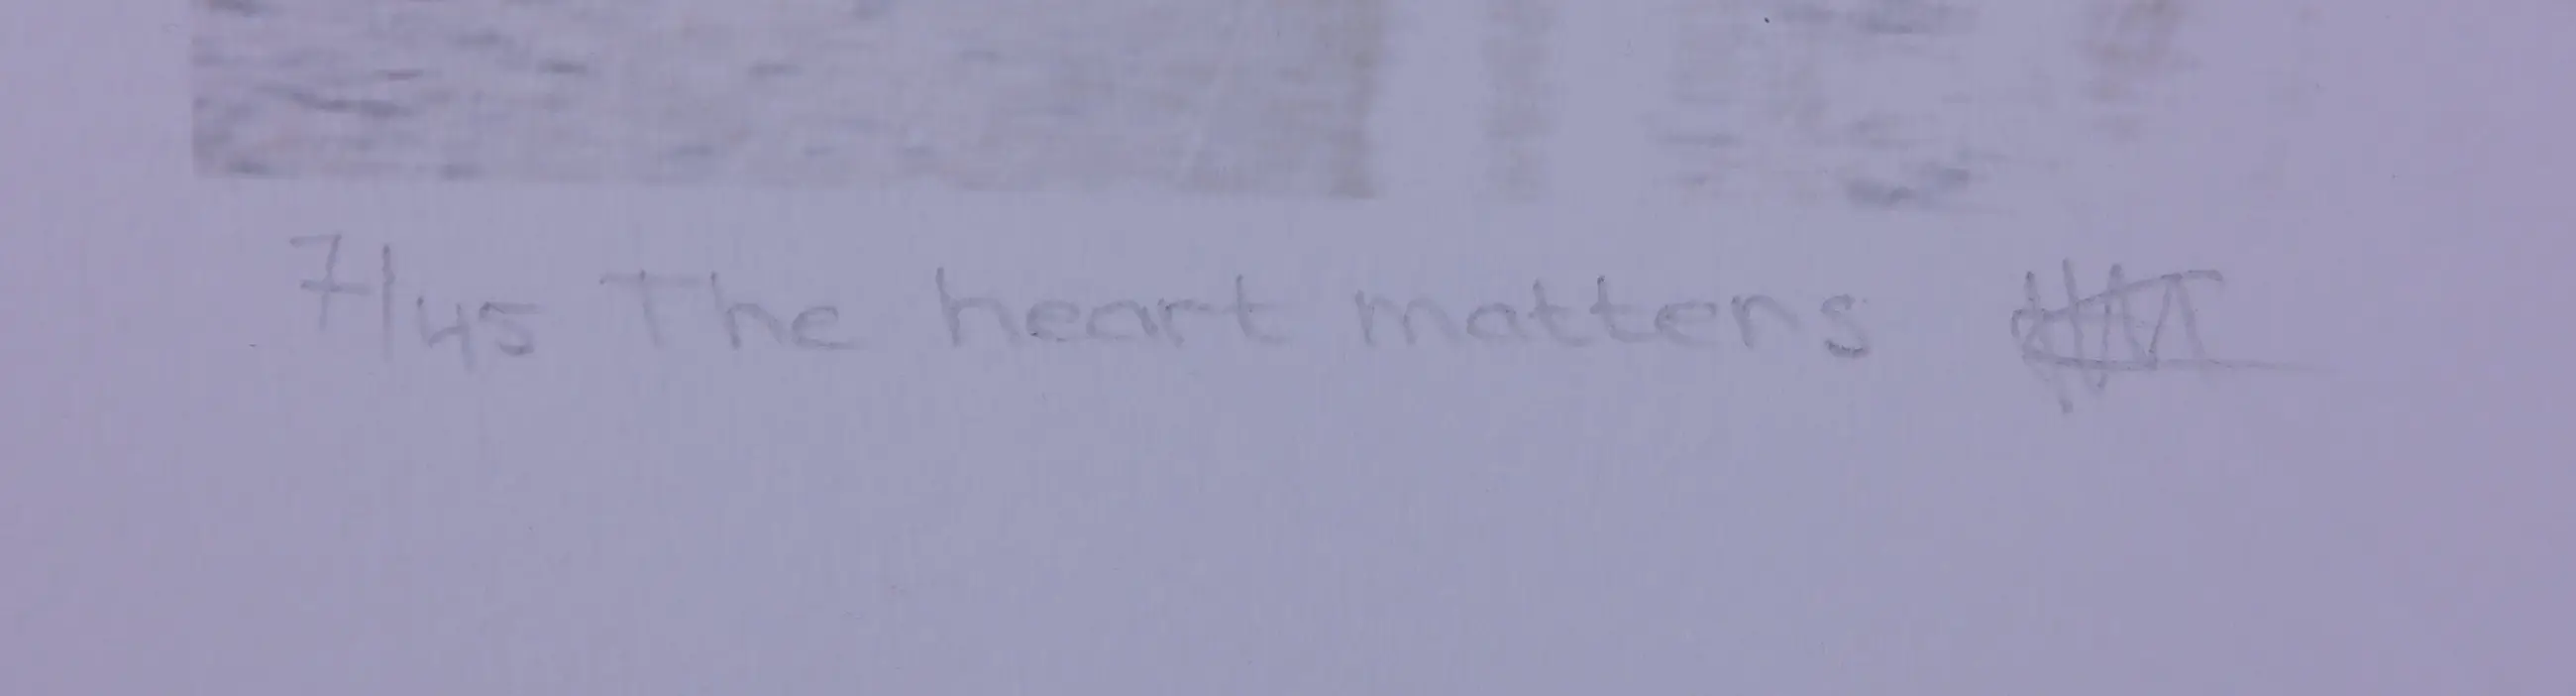 7/45 The heart matters